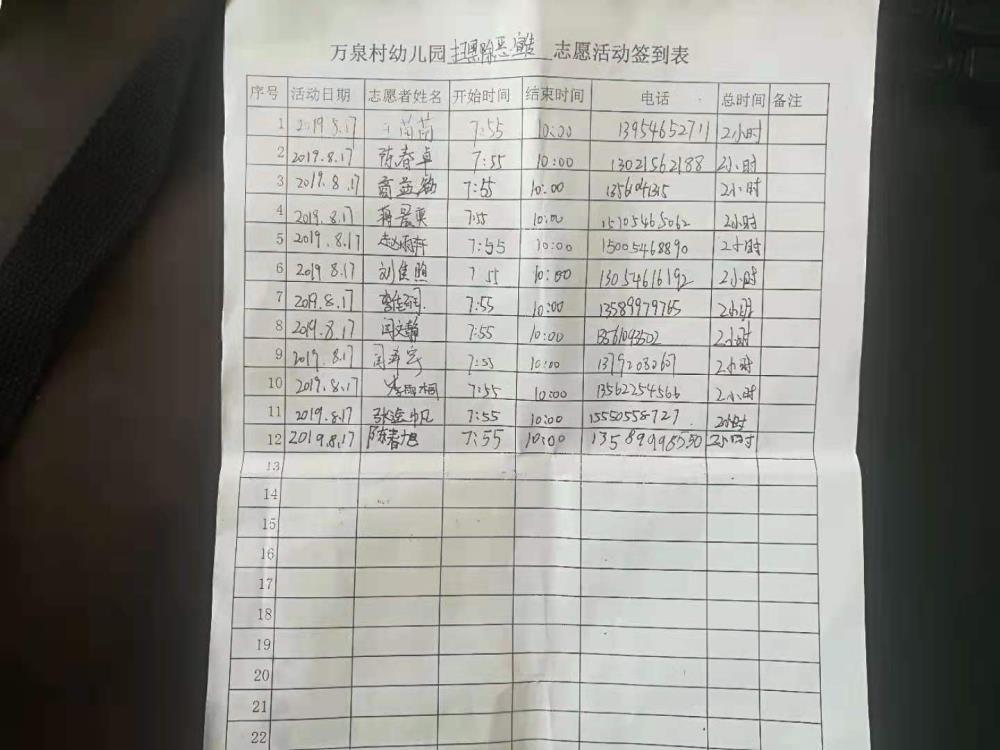 万泉村幼儿园扫黑除恶宣传志愿活动签到表
序号 活动日期 志愿者姓名 开始时间 结束时间 电话 总时间 备注
1 2019.8.17 7:55 10:00 13954652711 2小时
2 2019.8.17 陈春卓 7:55 10:00 13021562188 2小时
3 2019.8.17 7:55 10:00 2小时
4 2019.8.17 蒋晨爽 7:55 10:00 15105465062 2小时
5 2019.8.17 赵雨轩 7:55 10:00 15005468890 2小时
6 2019 8.17 刘焦煦 7 55 10:00 13054616192 2小时
7 2019.8.17 7:55 10:00 13589979765 2小时
8 2019.8.17 闫文瀚 7:55 10:00 2小时
9 2019.8.17 7:55 10:00 2小时
10 2019.8.17 7:55 10:00 13562254566 2小时
11 2019.8.17 张逸帆 7:55 10:00 15550558727 2小时
12 2019.8.17 陈春旭 7:55 10:00 13589998530 2小时
13
14
15
16
17
18
19
20
21
22